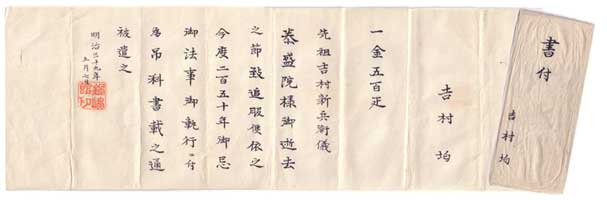 書付
吉村均
吉村均
一金五百疋
先祖吉村新兵衛儀
泰盛院様御逝去
之節致追腹候依之
今度二百五十年御忌
御法事御執行ニ付
為吊料書載之通
被遣之
明治三十九年
五月七日